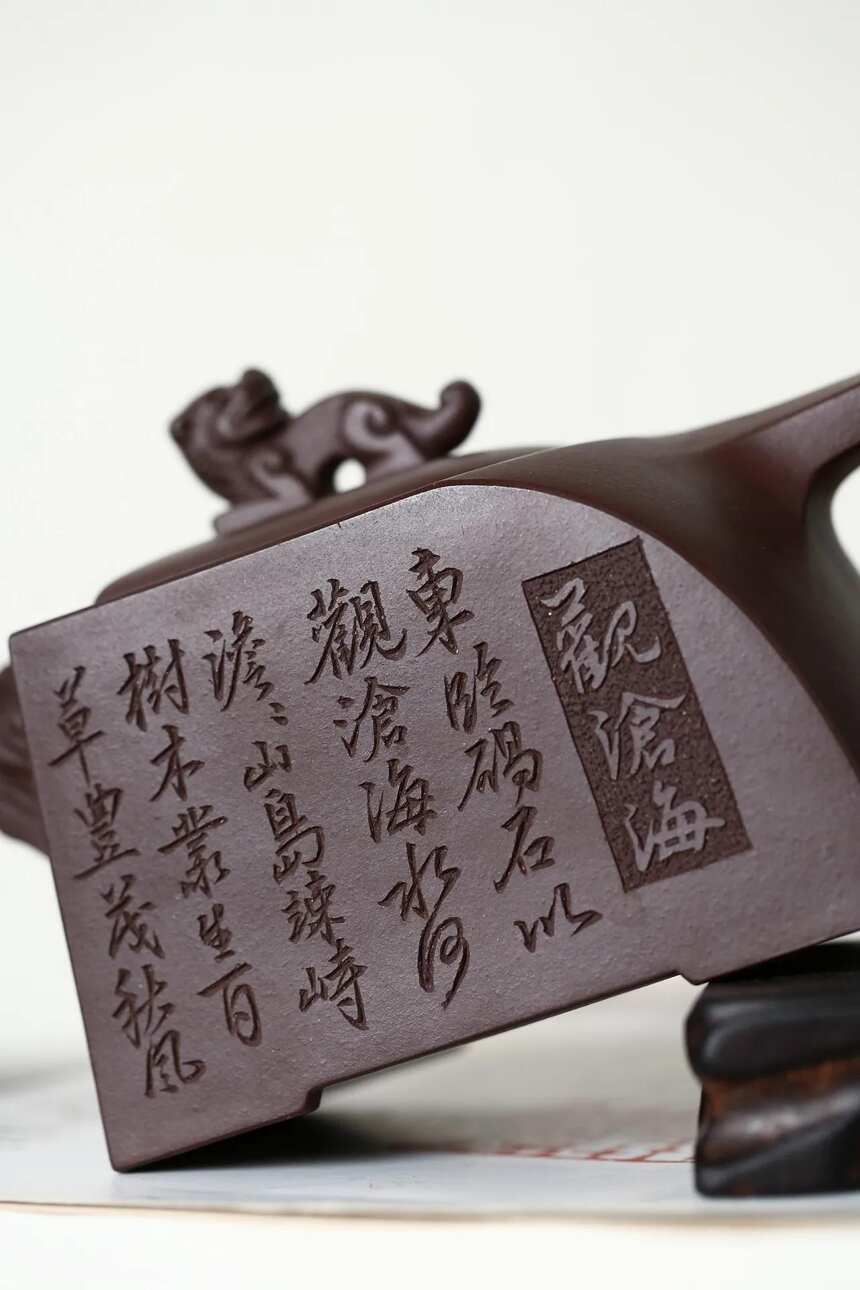 觀滄海
東臨碣石以
觀滄海水何
澹〻山島竦峙
樹木叢生百
草豐茂秋風